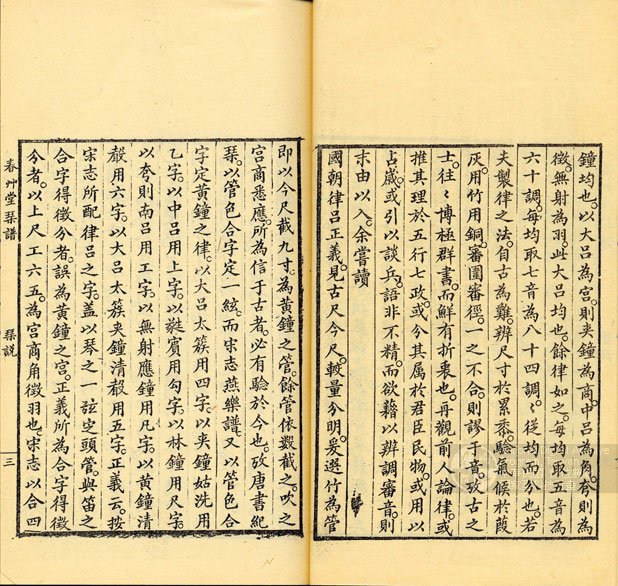 鐘均也。以大呂為宮。則夾鐘為商。中呂為角。夷則為
徵。無射為羽。此大呂均也。餘律如之。每均取五音為
六十調。每均取七音為八十四調。〻從均而分也。若
夫製律之法。自古為難。辨尺寸於累黍。驗氣候於葭
灰。用竹用銅。審圍審徑。一之不合。則謬于音。攷古之
士。往〻博極群書。而鮮有折衷也。丹觀前人論律。或
推其理於五行七政。或分其屬於君臣民物。或用以
占歲。或引以談兵。語非不精。而欲藉以辨調審音。則
末由以入。余嘗讀
國朝律呂正義。見古尺今尺。較量分明。爰選竹為管
即以今尺截九寸。為黃鐘之管。餘管依數截之。吹之
宮商悉應。所為信于古者。必有驗於今也。攷唐書紀
琴。以管色合字定一絃。而宋志燕樂譜。又以管色合
字定黃鐘之律。以大呂太簇用四字。以夾鐘姑洗用
乙字。以中呂用上字。以蕤賓用勾字。以林鐘用尺字。
以夷則南呂用工字。以無射應鐘用凡字。以黃鐘清
聲用六字。以大呂太簇夾鐘清聲用五字。正義云。按
宋志所配律呂之字。蓋以琴之一弦定頭管。與笛之
合字得徵分者。誤為黃鐘之宮。正義所為合字得徵
今者。以上尺工六五。為宮商角徵羽也。宋志以合四
春艸堂琴譜 琴說 三